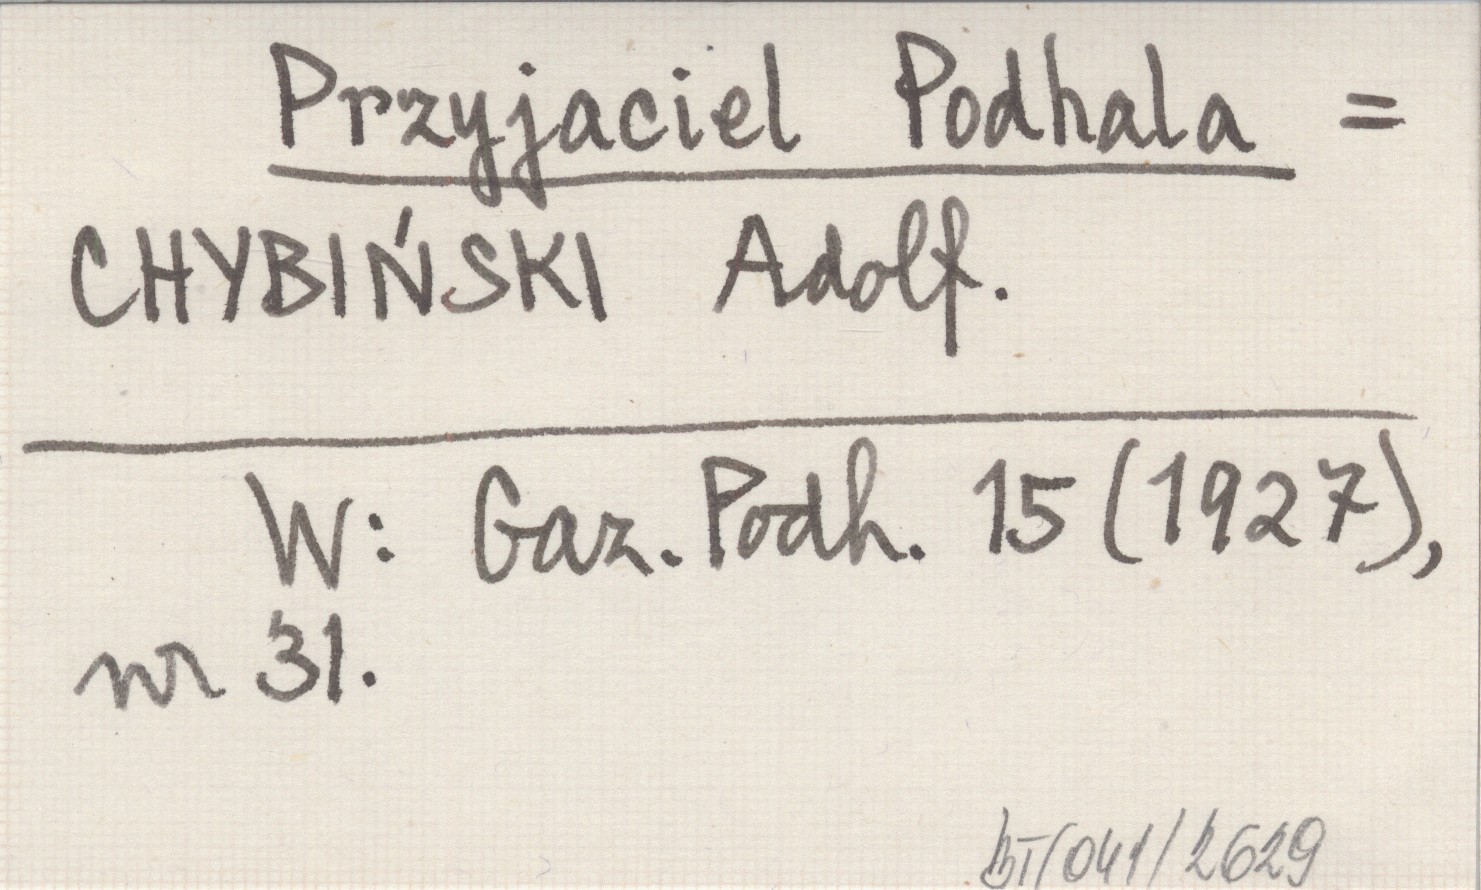 Przyjaciel Podhala =
CHYBIŃSKI Adolf.
W: Gaz. Podh. 15 (1927),
nr 31.
bT/041/2629